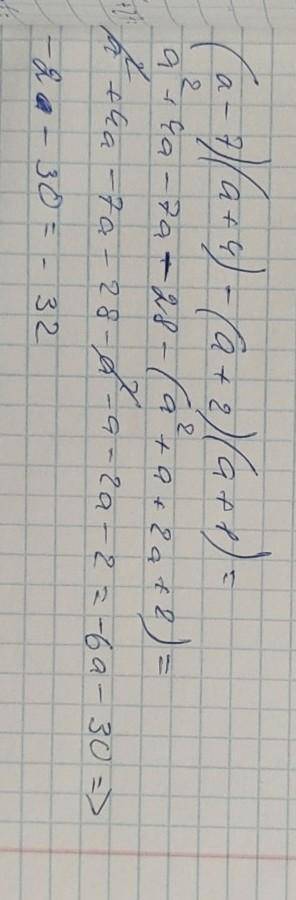 (a-7)(a+4)-(a+2)(a+1)=
a²+4a-7a-28-(a²+a+2a+2)=
a²+4a-7a-28-a²-a-2a-2=-6a-30=>
-2a-30=-32